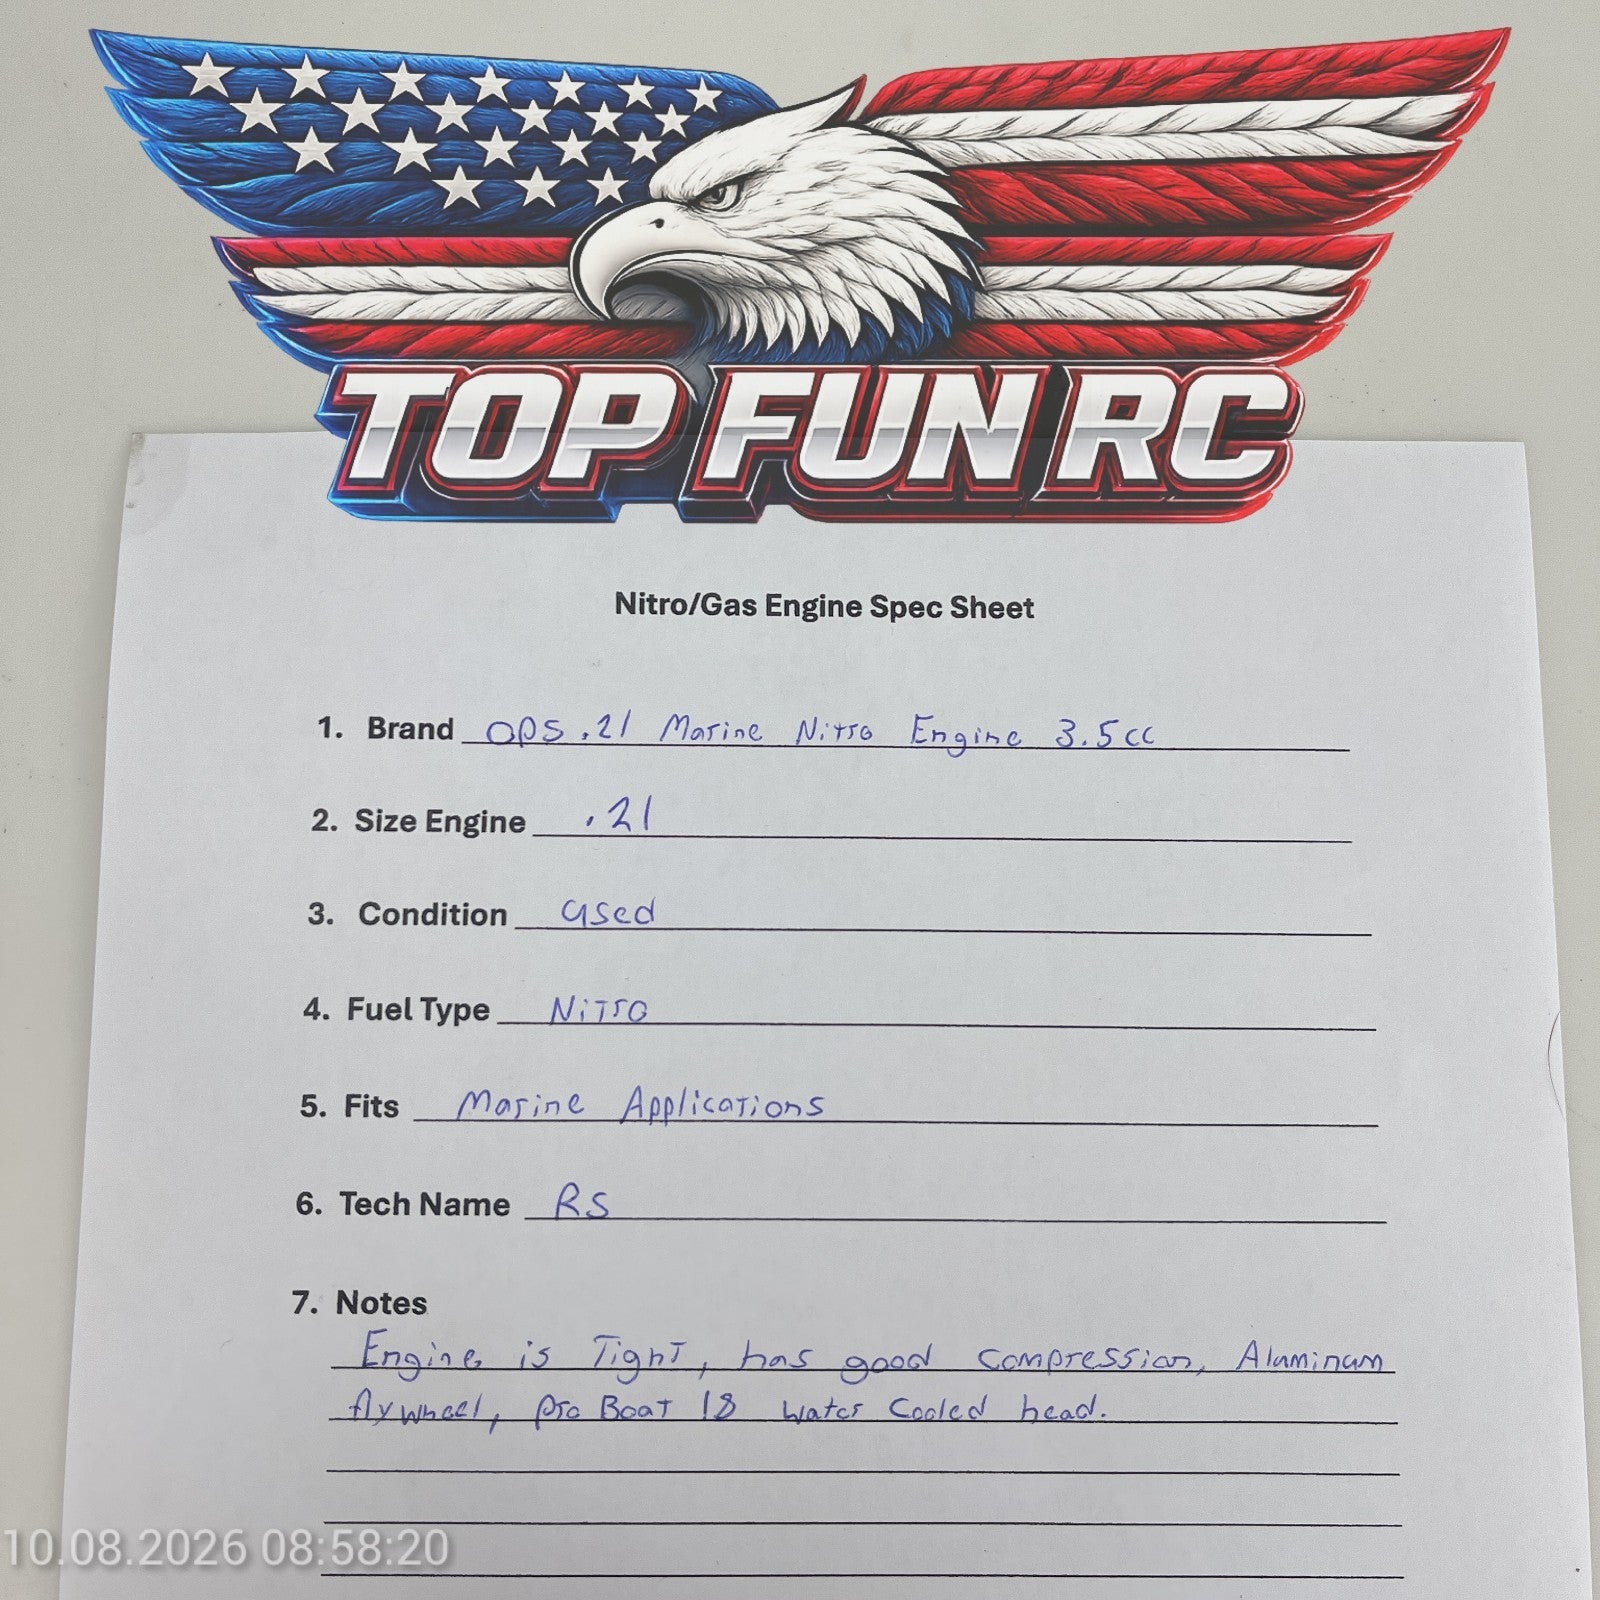 TOP FUN RC
Nitro/Gas Engine Spec Sheet
1. Brand OPS .21 Marine Nitro Engine 3.5cc
2. Size Engine .21
3. Condition used
4. Fuel Type Nitro
5. Fits Marine Applications
6. Tech Name RS
7. Notes
Engine is Tight, has good compression, Aluminum
flywheel, Pro Boat 18 water cooled head.
10.08.2026 08:58:20